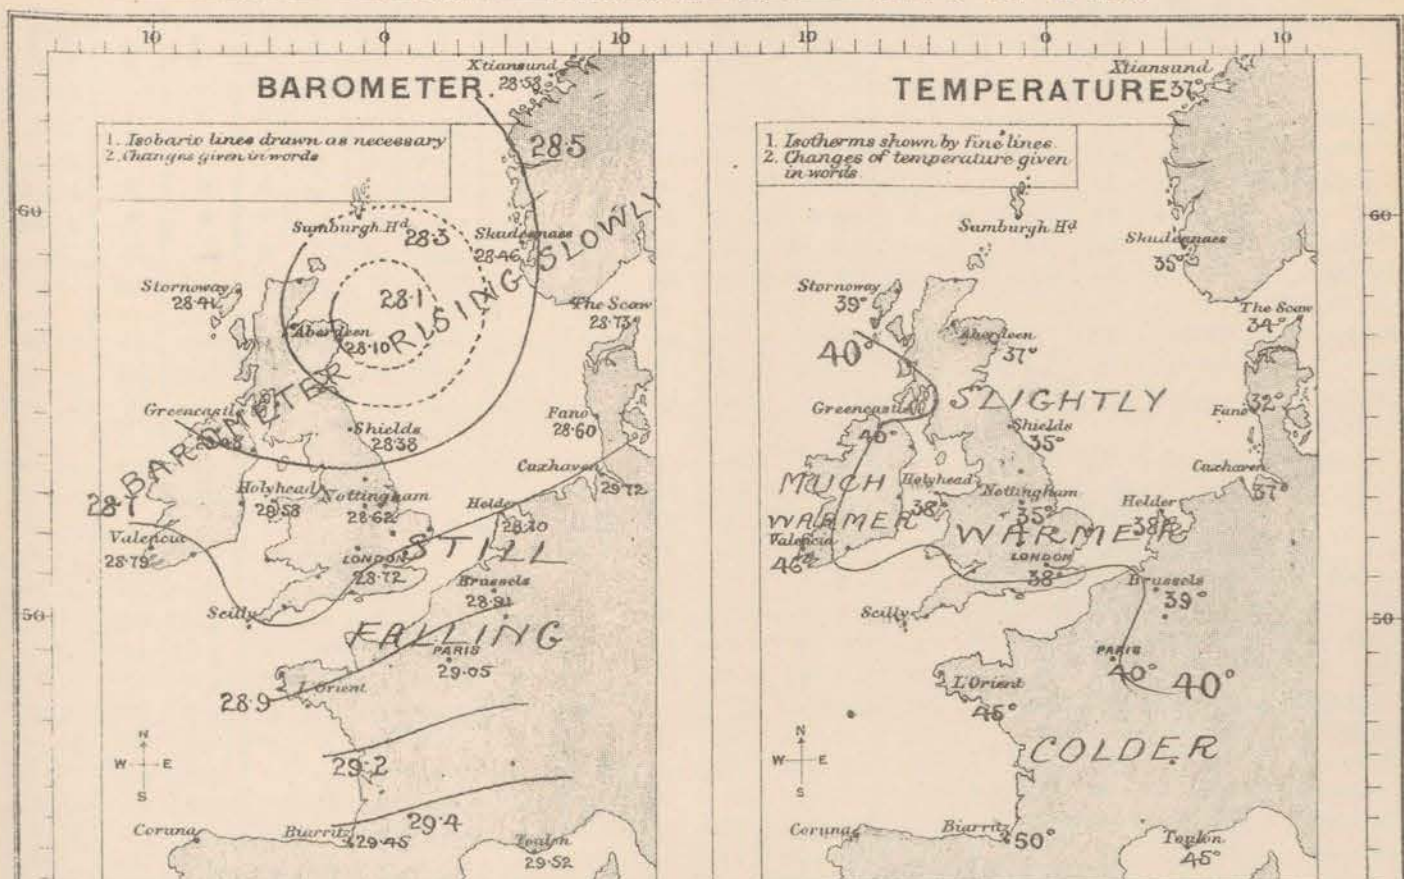 10 0 10
BAROMETER.
1. Isobaric lines drawn as necessary
2. Changes given in words
Xtiansund
28·58
28·5
60
Sumburgh Hd
28·3
Skudesnaes
28·46
Stornoway
28·41
28·1
The Scaw
28·73
Aberdeen
28·10
BAROMETER RISING SLOWLY
Greencastle
Shields
28·38
Fano
28·60
Cuxhaven
29·72
Holyhead
28·58
Nottingham
28·62
Helder
28·70
28·7
Valencia
28·79
LONDON
28·72
STILL
Brussels
28·91
Scilly
50
FALLING
PARIS
29·05
L'Orient
28·9
N
W E
S
29·2
29·4
Coruna
Biarritz
29·45
Toulon
29·52
10 0 10
TEMPERATURE
1. Isotherms shown by fine lines.
2. Changes of temperature given
in words
Xtiansund
37°
60
Sumburgh Hd
Skudesnaes
35°
Stornoway
39°
The Scaw
34°
Aberdeen
37°
40°
SLIGHTLY
Greencastle
40°
Shields
35°
Fano
32°
Cuxhaven
37°
MUCH
WARMER
Holyhead
38°
Nottingham
35°
Helder
38°
WARMER
Valencia
46°
LONDON
38°
Brussels
39°
Scilly
50
PARIS
40°
40°
L'Orient
45°
COLDER
N
W E
S
Coruna
Biarritz
50°
Toulon
45°